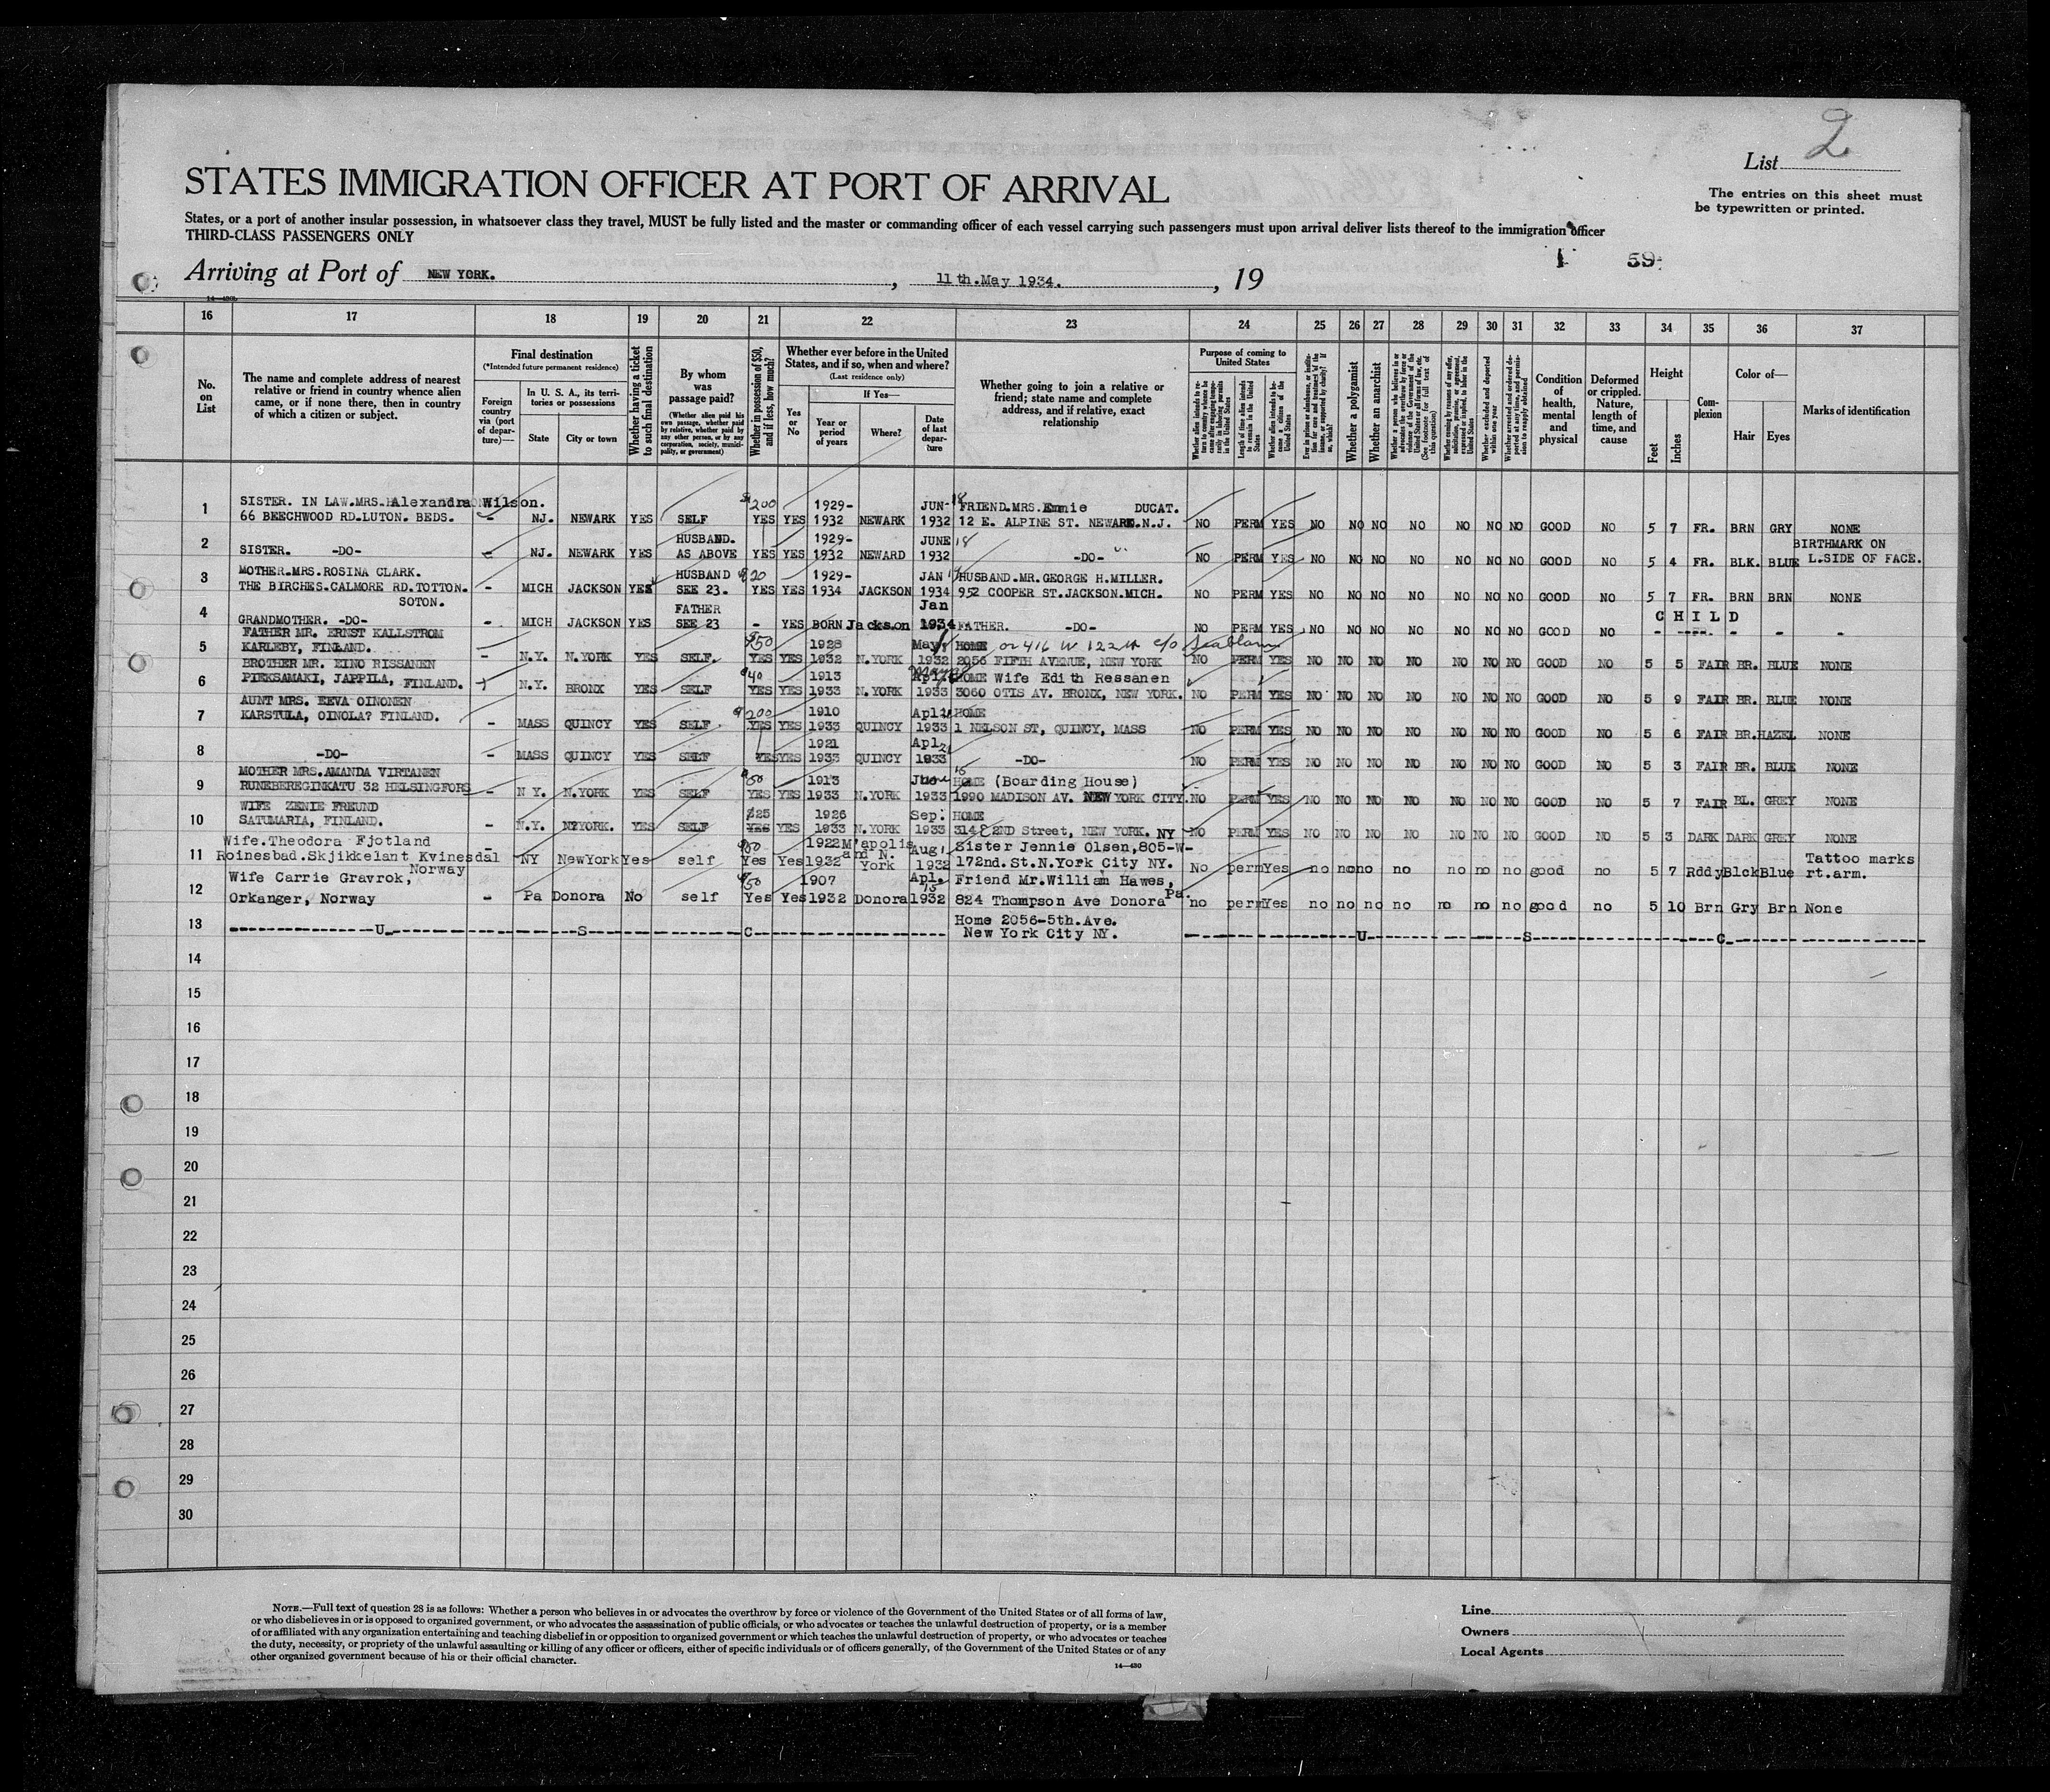 2
List
STATES IMMIGRATION OFFICER AT PORT OF ARRIVAL
The entries on this sheet must
be typewritten or printed.
States, or a port of another insular possession, in whatsoever class they travel, MUST be fully listed and the master or commanding officer of each vessel carrying such passengers must upon arrival deliver lists thereof to the immigration officer
THIRD-CLASS PASSENGERS ONLY
1 59
Arriving at Port of NEW YORK. , 11th.May 1934. , 19
14—430b
16 17 18 19 20 21 22 23 24 25 26 27 28 29 30 31 32 33 34 35 36 37
No. on List
The name and complete address of nearest relative or friend in country whence alien came, or if none there, then in country of which a citizen or subject.
Final destination
(*Intended future permanent residence)
Foreign country via (port of departure)—
In U. S. A., its territories or possessions
State
City or town
Whether having a ticket to such final destination
By whom was passage paid?
(Whether alien paid his own passage, whether paid by relative, whether paid by any other person, or by any corporation, society, municipality, or government)
Whether in possession of $50, and if less, how much?
Whether ever before in the United States, and if so, when and where?
(Last residence only)
Yes or No
If Yes—
Year or period of years
Where?
Date of last departure
Whether going to join a relative or friend; state name and complete address, and if relative, exact relationship
Purpose of coming to United States
Length of time alien intends to remain in the United States
Whether alien intends to become a citizen of the United States
Whether a polygamist
Whether an anarchist
Whether excluded and deported within one year
Condition of health, mental and physical
Deformed or crippled. Nature, length of time, and cause
Height
Feet
Inches
Complexion
Color of—
Hair
Eyes
Marks of identification
1 SISTER. IN LAW.MRS. Alexandra Wilson. $200 1929- JUN- 18 FRIEND.MRS.Emmie DUCAT.
66 BEECHWOOD RD.LUTON. BEDS. - NJ. NEWARK YES SELF YES YES 1932 NEWARK 1932 12 E. ALPINE ST. NEWARK.N.J. NO PERM YES NO NO NO NO NO NO NO GOOD NO 5 7 FR. BRN GRY NONE
2 HUSBAND. 1929- JUNE 18 BIRTHMARK ON
SISTER. -DO- - NJ. NEWARK YES AS ABOVE YES YES 1932 NEWARD 1932 -DO- NO PERM YES NO NO NO NO NO NO NO GOOD NO 5 4 FR. BLK. BLUE L.SIDE OF FACE.
3 MOTHER.MRS.ROSINA CLARK. HUSBAND $20 1929- JAN HUSBAND.MR.GEORGE H.MILLER.
THE BIRCHES.CALMORE RD.TOTTON. - MICH JACKSON YES SEE 23. YES YES 1934 JACKSON 1934 952 COOPER ST.JACKSON.MICH. NO PERM YES NO NO NO NO NO NO NO GOOD NO 5 7 FR. BRN BRN NONE
SOTON.
4 FATHER Jan CHILD
GRANDMOTHER. -DO- - MICH JACKSON YES SEE 23 - YES BORN Jackson 1934 FATHER. -DO- NO PERM YES NO NO NO NO NO NO NO GOOD NO - ---- - - -
5 FATHER MR. ERNST KALLSTROM $50 1928 May HOME or 416 W 122 c/o
KARLEBY, FINLAND. - N.Y. N.YORK YES SELF. YES YES 1932 N.YORK 1932 2056 FIFTH AVENUE, NEW YORK NO PERM YES NO NO NO NO NO NO NO GOOD NO 5 5 FAIR BR. BLUE NONE
6 BROTHER MR. EINO RISSANEN $40 1913 HOME Wife Edith Ressanen
PIEKSAMAKI, JAPPILA, FINLAND. N.Y. BRONX YES SELF YES YES 1933 N.YORK 1933 3060 OTIS AV. BRONX, NEW YORK. NO PERM YES NO NO NO NO NO NO NO GOOD NO 5 9 FAIR BR. BLUE NONE
7 AUNT MRS. EEVA OINONEN $200 1910 Apl HOME
KARSTULA, OINOLA? FINLAND. - MASS QUINCY YES SELF YES YES 1933 QUINCY 1933 1 NELSON ST, QUINCY, MASS NO PERM YES NO NO NO NO NO NO NO GOOD NO 5 6 FAIR BR. HAZEL NONE
8 1921 Apl
-DO- - MASS QUINCY YES SELF YES YES 1933 QUINCY 1933 -DO- NO PERM YES NO NO NO NO NO NO NO GOOD NO 5 3 FAIR BR. BLUE NONE
9 MOTHER MRS.AMANDA VIRTANEN $50 1913 June 15 HOME (Boarding House)
RUNEBEREGINKATU 32 HELSINGFORS - N Y. N.YORK YES SELF YES YES 1933 N.YORK 1933 1990 MADISON AV. NEW YORK CITY. NO PERM YES NO NO NO NO NO NO NO GOOD NO 5 7 FAIR BL. GREY NONE
10 WIFE ZENIE FREUND $25 1926 Sep: HOME
SATUMARIA, FINLAND. - N.Y. NYYORK. YES SELF YES YES 1933 N.YORK 1933 314 E 2ND Street, NEW YORK. NY NO PERM YES NO NO NO NO NO NO NO GOOD NO 5 3 DARK DARK GREY NONE
11 Wife.Theodora Fjotland - $50 1922 M'apolis Aug Sister Jennie Olsen,805-W- Tattoo marks
Roinesbad.Skjikkelant Kvinesdal NY NewYork Yes self Yes Yes 1932 and N. York 1932 172nd.St.N.York City NY. No perm Yes no no no no no no no good no 5 7 Rddy Blck Blue rt.arm.
Norway
12 Wife Carrie Gravrok, $50 1907 Apl. 15 Friend Mr.William Hawes,
Orkanger, Norway - Pa Donora No self Yes Yes 1932 Donora 1932 824 Thompson Ave Donora Pa. no perm Yes no no no no no no no good no 5 10 Brn Gry Brn None
13 Home 2056-5th.Ave.
U S C New York City NY. U S C
14
15
16
17
18
19
20
21
22
23
24
25
26
27
28
29
30
NOTE.—Full text of question 28 is as follows: Whether a person who believes in or advocates the overthrow by force or violence of the Government of the United States or of all forms of law,
or who disbelieves in or is opposed to organized government, or who advocates the assassination of public officials, or who advocates or teaches the unlawful destruction of property, or is a member
of or affiliated with any organization entertaining and teaching disbelief in or opposition to organized government or which teaches the unlawful destruction of property, or who advocates or teaches
the duty, necessity, or propriety of the unlawful assaulting or killing of any officer or officers, either of specific individuals or of officers generally, of the Government of the United States or of any
other organized government because of his or their official character.
14—430
Line
Owners
Local Agents